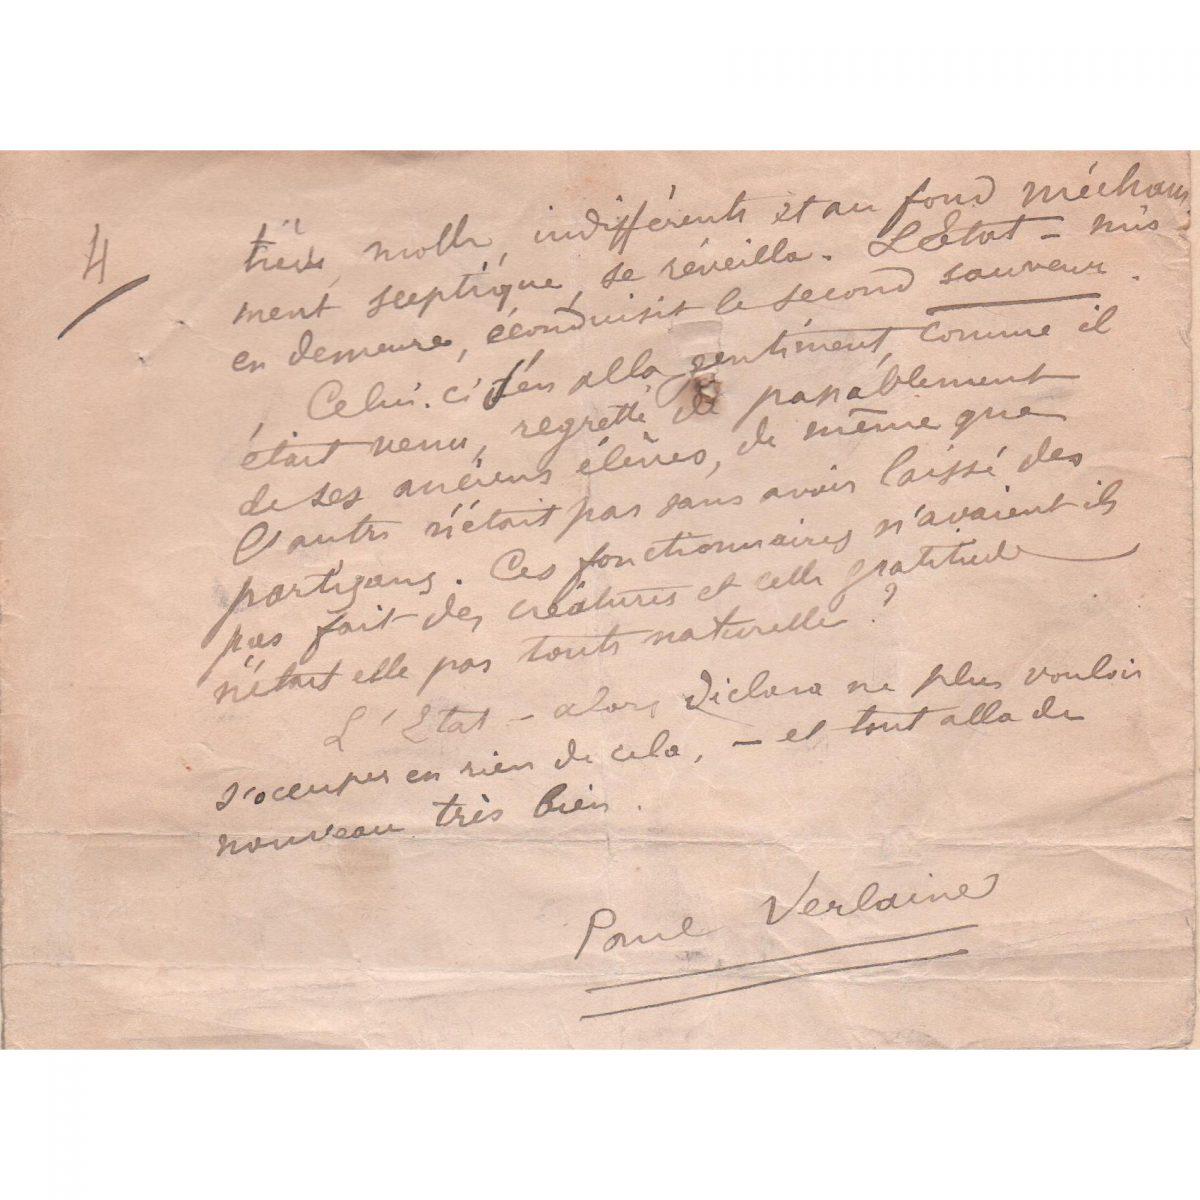 4/
molle, indifférente et au fond mécham
ment sceptique, se réveilla. L'Etat – mis
en demeure, éconduisit le second sauveur.
Celui-ci s'en alla gentiment, comme il
était venu, regretté de
de ses anciens élèves, de même que
l'autre n'était pas sans avoir laissé des
partisans. Ces fonctionnaires n'avaient ils
pas fait des créatures et cette gratitude
n'était elle pas toute naturelle ?
L'Etat – alors déclara ne plus vouloir
s'occuper en rien de cela, – et tout alla de
nouveau très bien.
Paul Verlaine